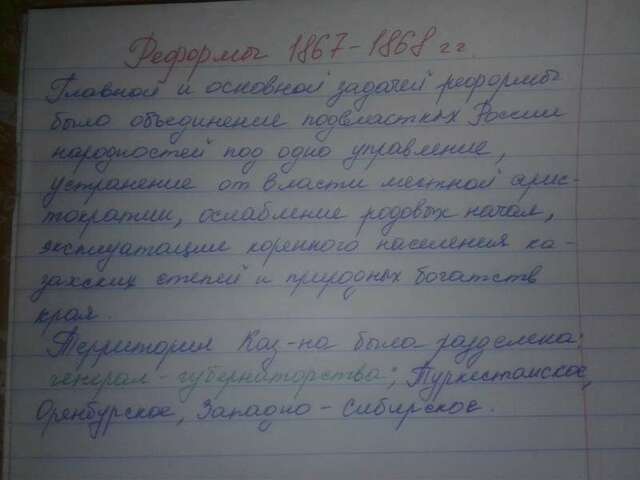 Реформы 1867-1868 гг.
Главной и основной задачей реформы
было объединение подвластных России
народностей под одно управление,
устранение от власти местной арис-
тократии, ослабление родовых начал,
эксплуатация коренного населения ка-
захских степей и природных богатств
края.
Территория Каз-на была разделена:
генерал-губернаторства: Туркестанское,
Оренбургское, Западно-Сибирское.